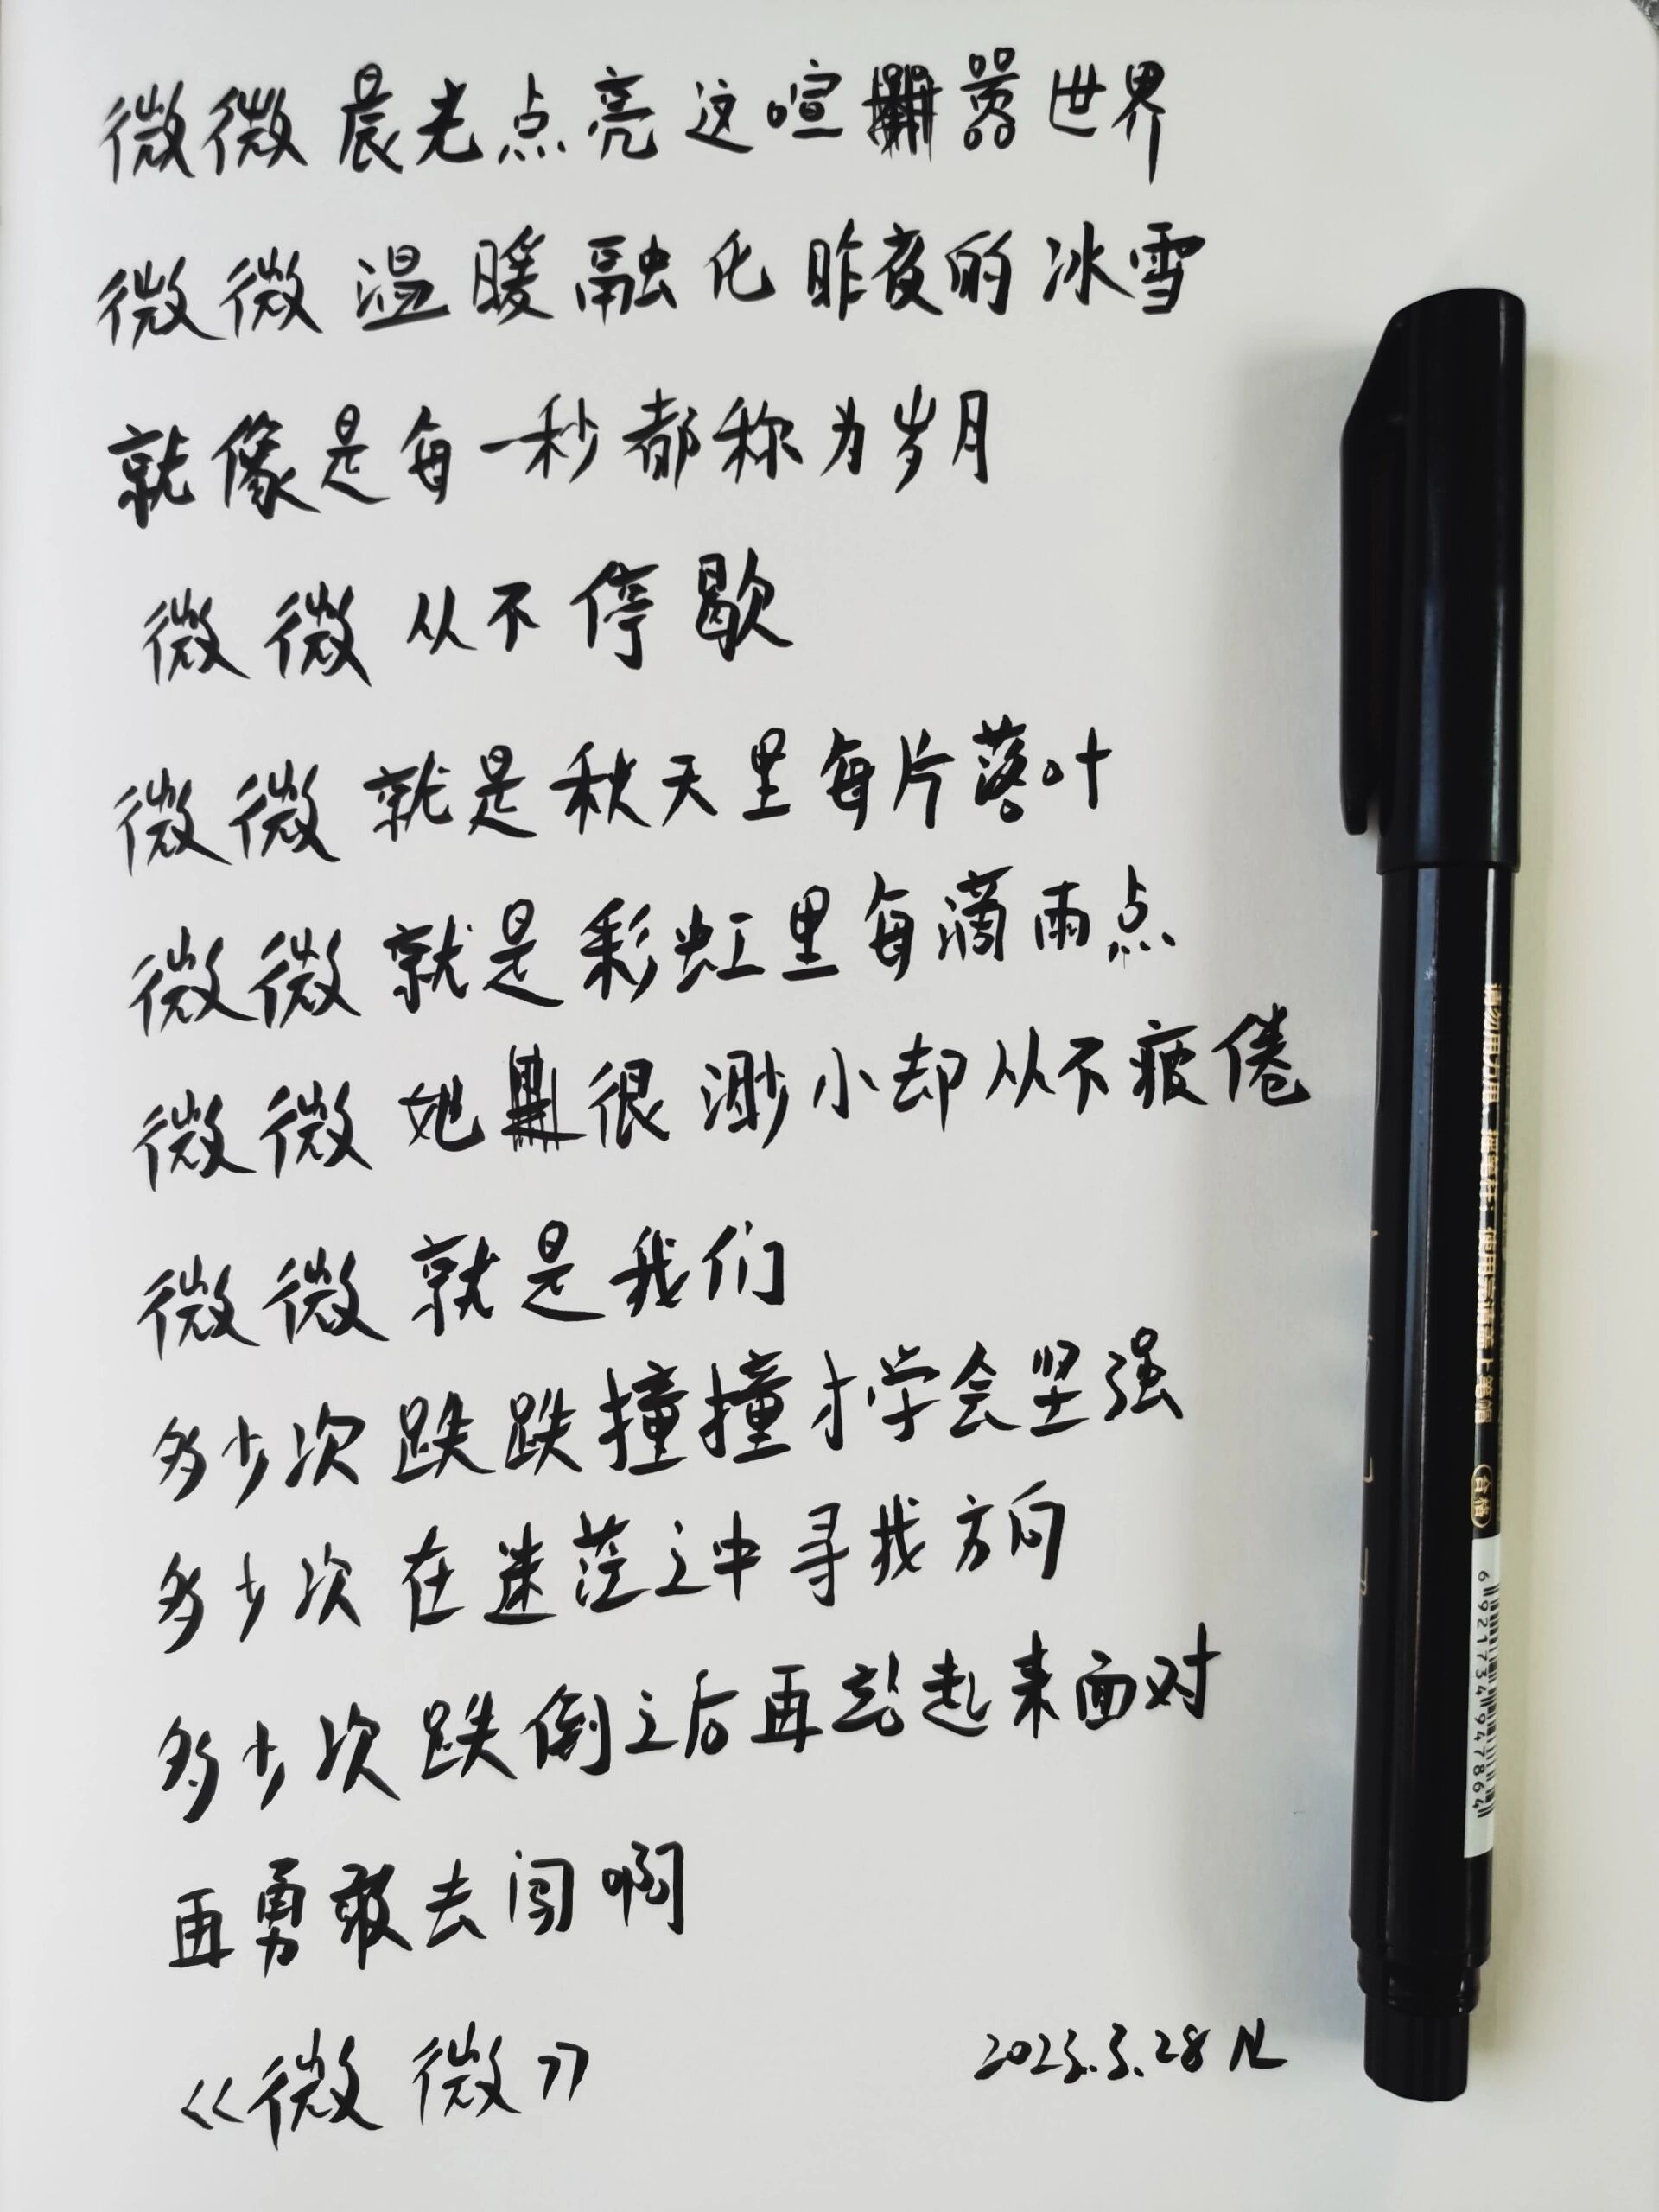 微微晨光点亮这喧嚣世界
微微温暖融化昨夜的冰雪
就像是每一秒都称为岁月
微微从不停歇
微微就是秋天里每片落叶
微微就是彩虹里每滴雨点
微微她很渺小却从不疲倦
微微就是我们
多少次跌跌撞撞才学会坚强
多少次在迷茫之中寻找方向
多少次跌倒之后再站起来面对
再勇敢去闯啊
《微微》
28
合格
6921734947864